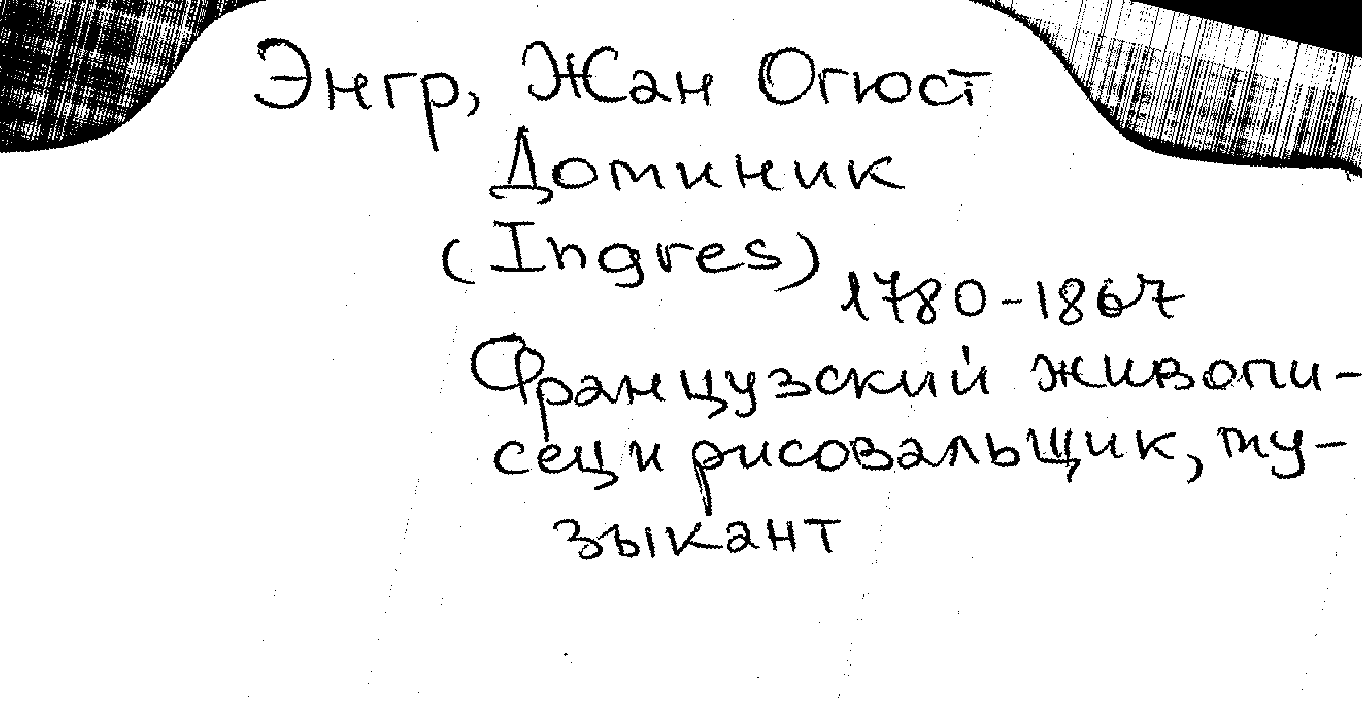 Энгр, Жан Огюст
Доминик
(Ingres)
1780-1867
Французский живопи-
сец и рисовальщик, му-
зыкант